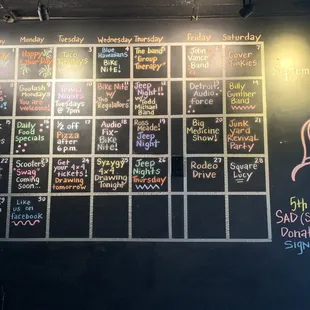 Monday Tuesday Wednesday Thursday Friday Saturday
Happy
Labor
Day
Taco
Tuesdays
Blue
Hawaiians
Bike
Nite!
The band
"Group
Therapy"
John
Vance
Band
Cover
Junkies
Goulash
Mondays
You are
welcome
Trivia
Nights
Tuesdays
@ 7pm
Bike Nite
w/
Regulators
Jeep
Nights!
w/ Todd
Michael
Band
Detroit
Audio
force
Billy
Gunther
Band
Daily
Food
Specials
1/2 off
Pizza
after
6pm.
Audio
Fix-
Bike
Nite
Russ
Meade!
Jeep
Nite!
Big
Medicine
Show!
Junk
Yard
Revival
Party
Scooter
Swag
Coming
soon!
Get your
4x4
tickets!
Drawing
tomorrow
Syzygy
4x4
Drawing
Tonight
Jeep
Nights
Thursday
Rodeo
Drive
Square
Lucy
Like
us on
facebook
5th
SAD (S
Donat
Sign